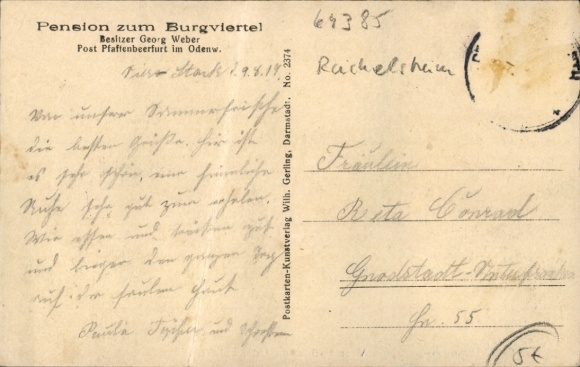 Pension zum Burgviertel
Besitzer Georg Weber
Post Pfaffenbeerfurt im Odenw.
9.8.19
Von unserer Sommerfrische
die besten Grüße. Hier ist
es sehr schön, eine himmlische
Ruhe sehr gut zum erholen.
Wir essen und trinken gut
und liegen den ganzen Tag
auf der faulen Haut
Paula Fischer und
Postkarten-Kunstverlag Wilh. Gerling, Darmstadt. No. 2374
64385
Reichelsheim
Fräulein
Reta Conrad
Gnodstadt-Unterfranken
Hn. 55
5€